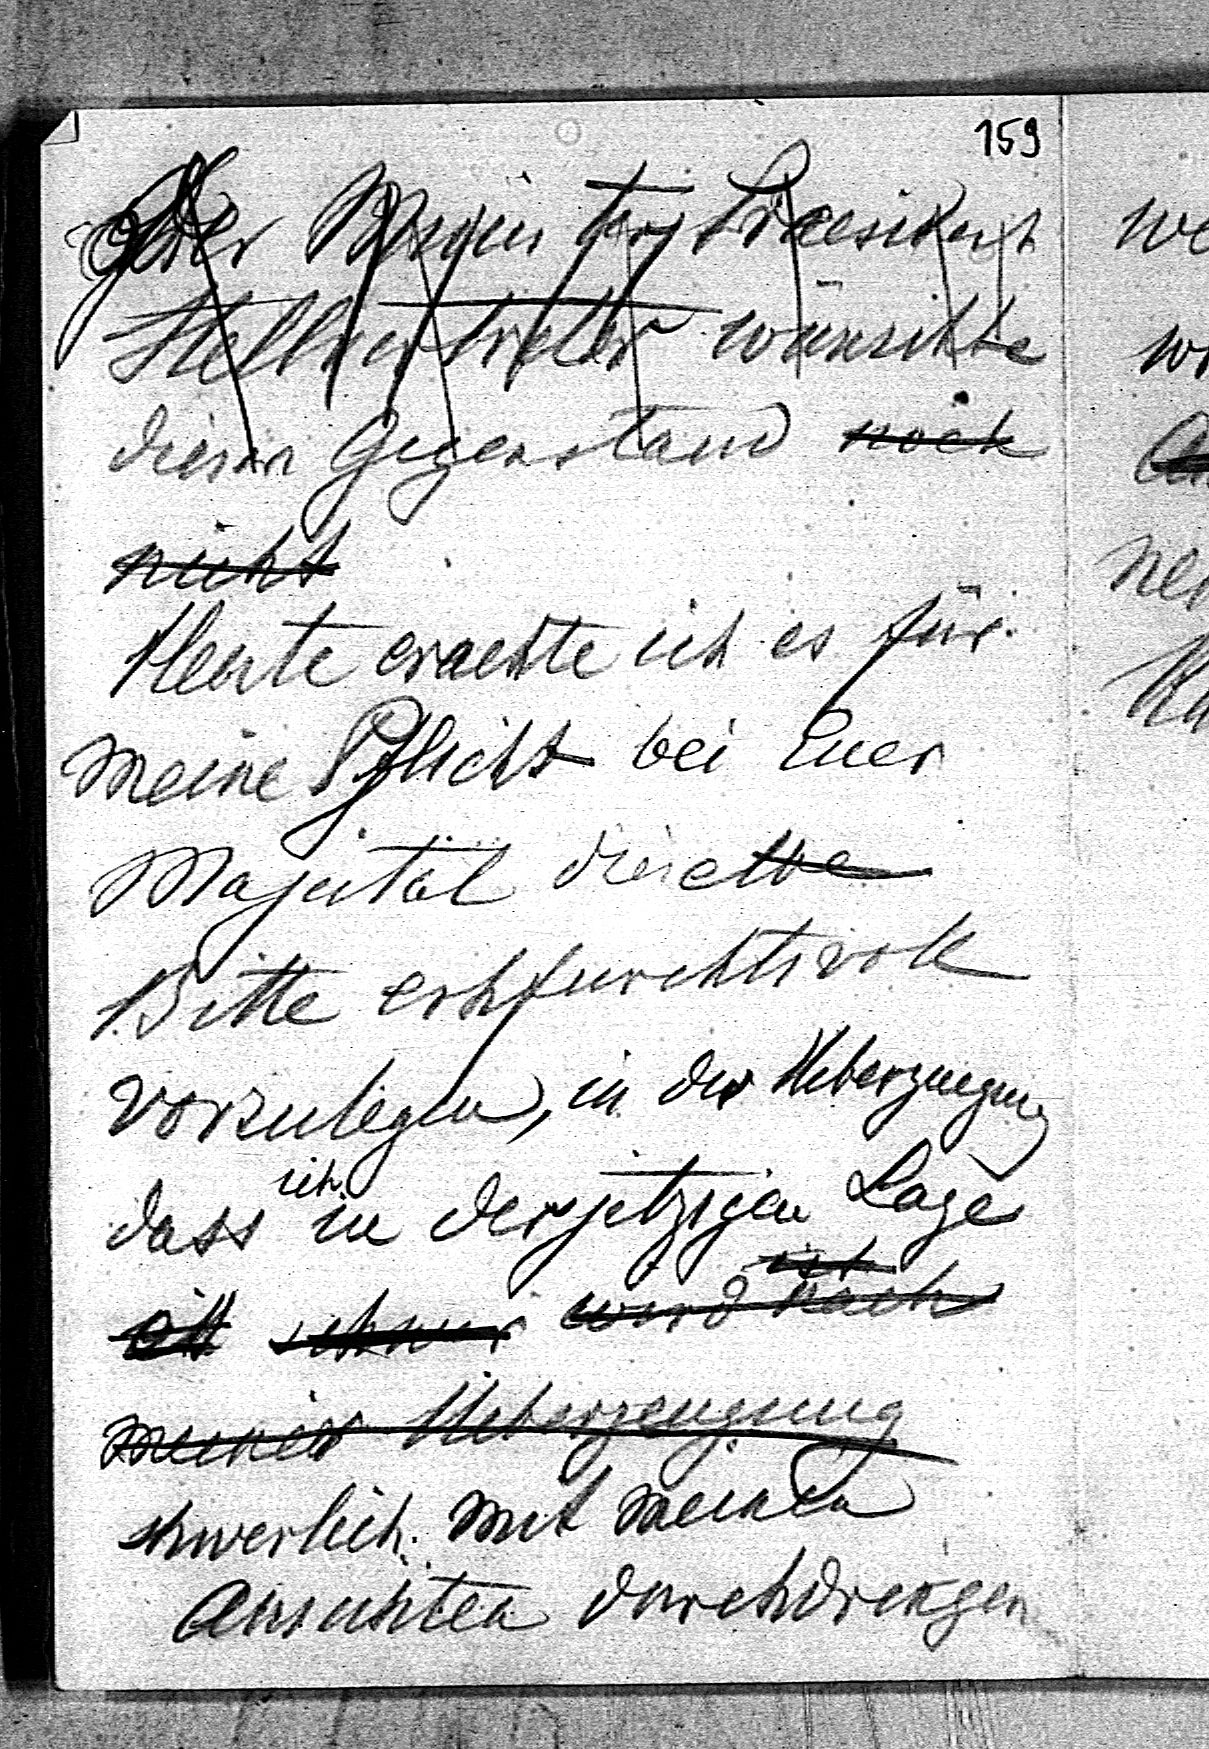 159
Der Minister Praesident
Stellvertreter wünschte
diesen Gegenstand noch
nicht
Heute erachte ich es für
meine Pflicht bei Euer
Majestät dieselbe
Bitte erhfurchtsvoll
vorzulegen, in der Ueberzeugung
dass ich in der jetzigen Lage
ist
schwer wird nach
meiner Ueberzeugung
schwerlich mit meinen
Ansichten durchdringen